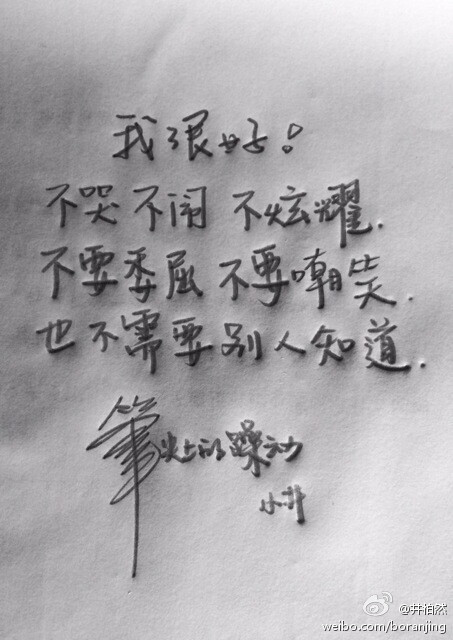 我很好！
不哭不闹 不炫耀.
不要委屈 不要嘲笑.
也不需要别人知道.
笔尖上的躁动
小井
@井柏然
weibo.com/boranjing